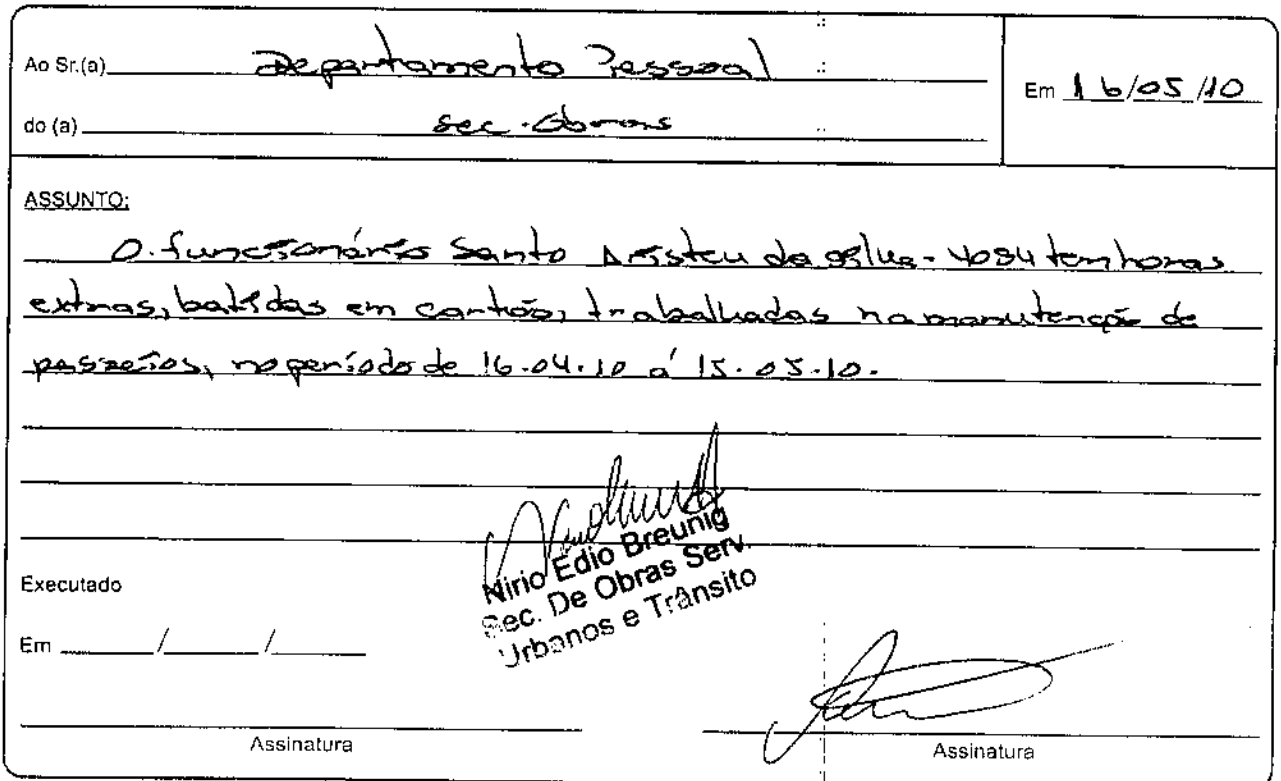 Ao Sr.(a) Departamento Pessoal
Em 16/05/10
do (a) Sec. Obras
ASSUNTO:
O funcionário Santo Aristeu da Silva - 4084 tem horas
extras, batidas em cartão, trabalhadas na manutenção de
passeios, no período de 16.04.10 á 15.05.10.
Nirio Edio Breunig
Sec. De Obras Serv.
Urbanos e Trânsito
Executado
Em / /
Assinatura
Assinatura